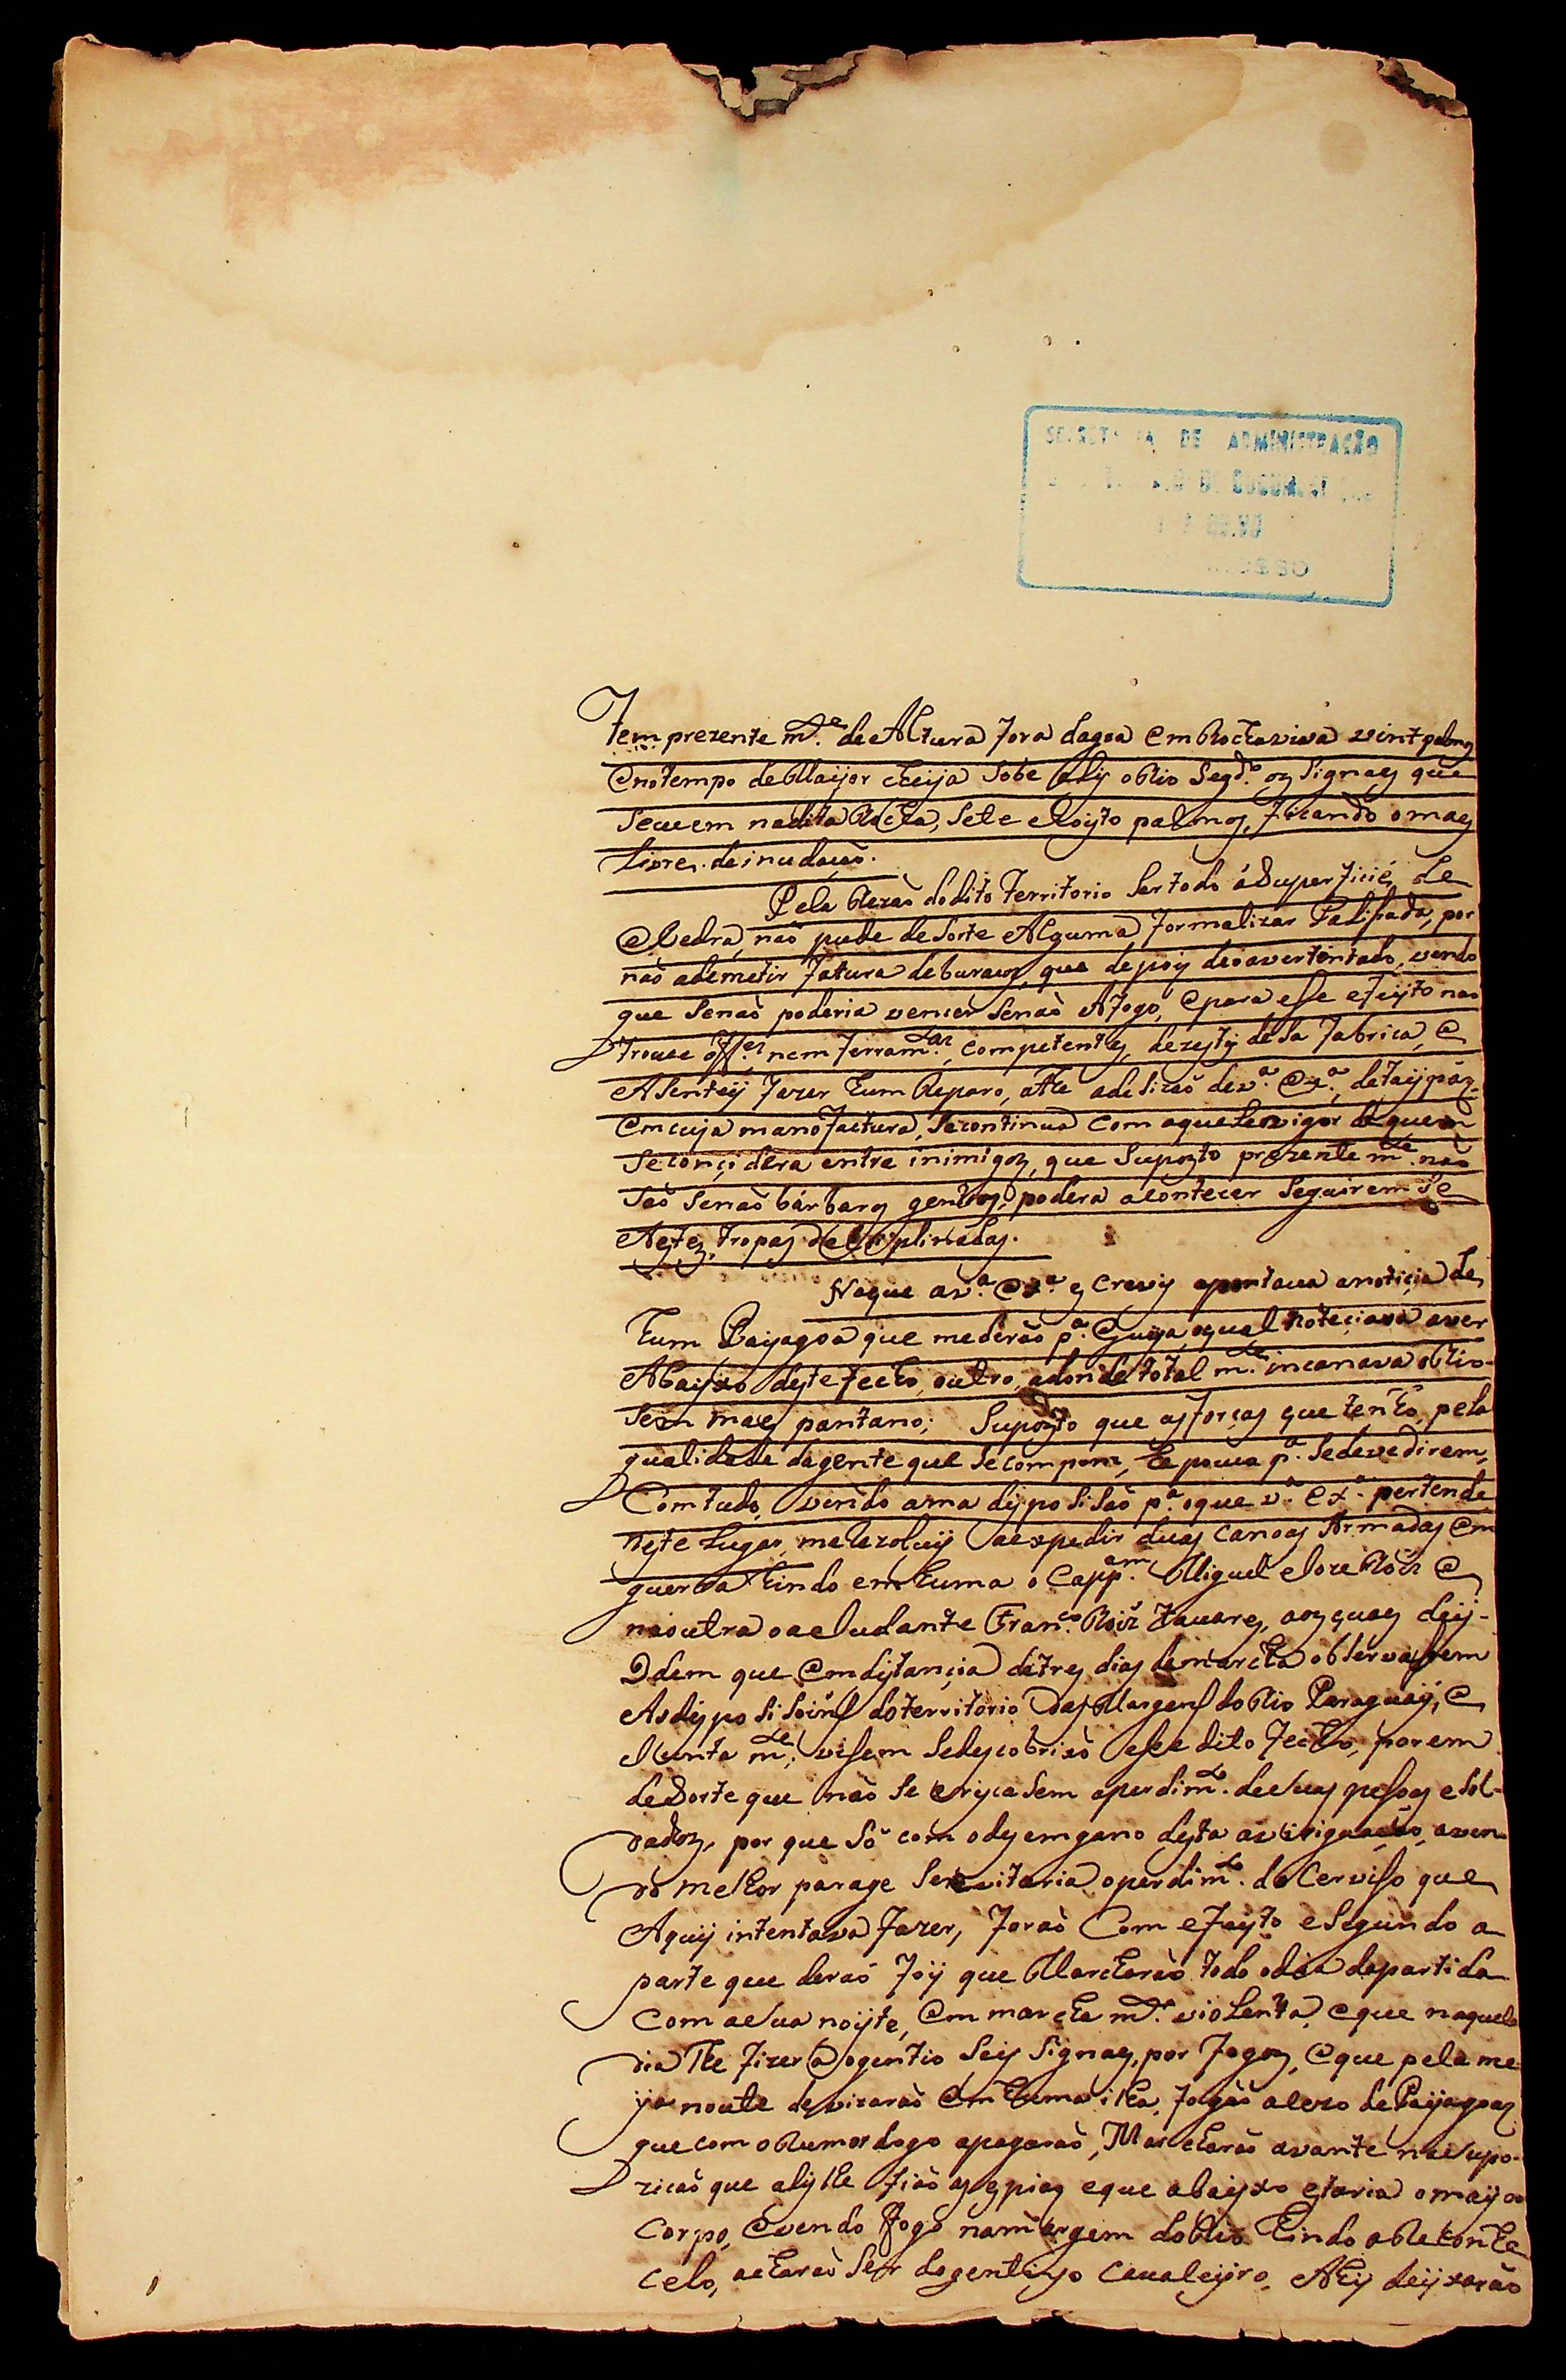 DE ADMINISTRAÇÃO
Tem prezente m.te de Altura fora dagoa em Rocha viva vinte palmos
e no tempo de Mayor cheija sobe aly o Rio segd.o os signaes que
se vem na dita Rocha, sete e Loijto palmos, ficando o maes
Livre de inudação.
Pela Rezaõ do dito Territorio ser todo á Superficie de
Pedra, naõ pude de sorte Alguma formalizar Palisada, por
naõ ademetir fatura de buracos, que depois de o aver tentado, vendo
que se naõ poderia vencer senaõ A fogo, e para esse efeijto naõ
trouce off.es nem ferram.tas competentes, dezesty de sa fabrica, e
Asentey fazer hum Reparo, athe a desizaõ de v.a Ex.a, de taijpas
em cuja manofactura, se continua com aquele vigor de quem
se conçidera entre inimigos, que suposto prezente m.te naõ
saõ senaõ bárbaros gentios, podera acontecer seguirem se
A estes, tropas desciplinadas.
No que a v.a Ex.a escrevy apontava a noticia de
hum Payagoa que mederaõ p.a Guija, o qual noteçiava aver
Abayxo deste fecho, outro, adonde total m.te incanava o Rio
sem maes pantano; Suposto que as forças que tenho, pela
qualidade da gente que se compom, he pouca p.a se devedirem,
Com tudo, vendo a ma disposisaõ p.a o que v.a Ex.a pertende
neste Lugar, me Rezoluij a expedir duas canoas Armadas em
guerra hindo em huma o Capp.am Miguel Joze Roiz e
na outra o aeludante Fran.co Roiz Tavares, aos quaes deij
Odem que em distançia de tres dias de marcha observassem
As disposisoins do territorio das Margens do Rio Paraguaij, e
Junta m.te visem se descobriaõ esse dito fecho, porem
de sorte que naõ se ariscasem a perdim.to de suas pessoas e sol-
dados, por que só com o desemgano desta averiguaçaõ, aven
do melhor parage se evitaria o perdim.to do Cervisso que
Aquij intentava fazer, foraõ Com efeijto e segundo a
parte que deraõ foij que Marcharaõ todo o dia da partida
com a sua noijte, em marcha m.to violenta, e que naquele
dia lhe fizera o gentio seis signaes, por fogos, e que pela me
ija noute devizaraõ em huma ilha, fogaõ aceso de Paijagoas
que com o Rumor logo apagaraõ, Marcharaõ avante na supo-
ziçaõ que aly lhe ficaõ as espias e que abaijxo estaria o maijor
Corpo, e vendo fogo na margem do Rio hindo a Reconhe
celo, acharaõ ser do gentiyo Cavaleijro. Ahy deijxaraõ